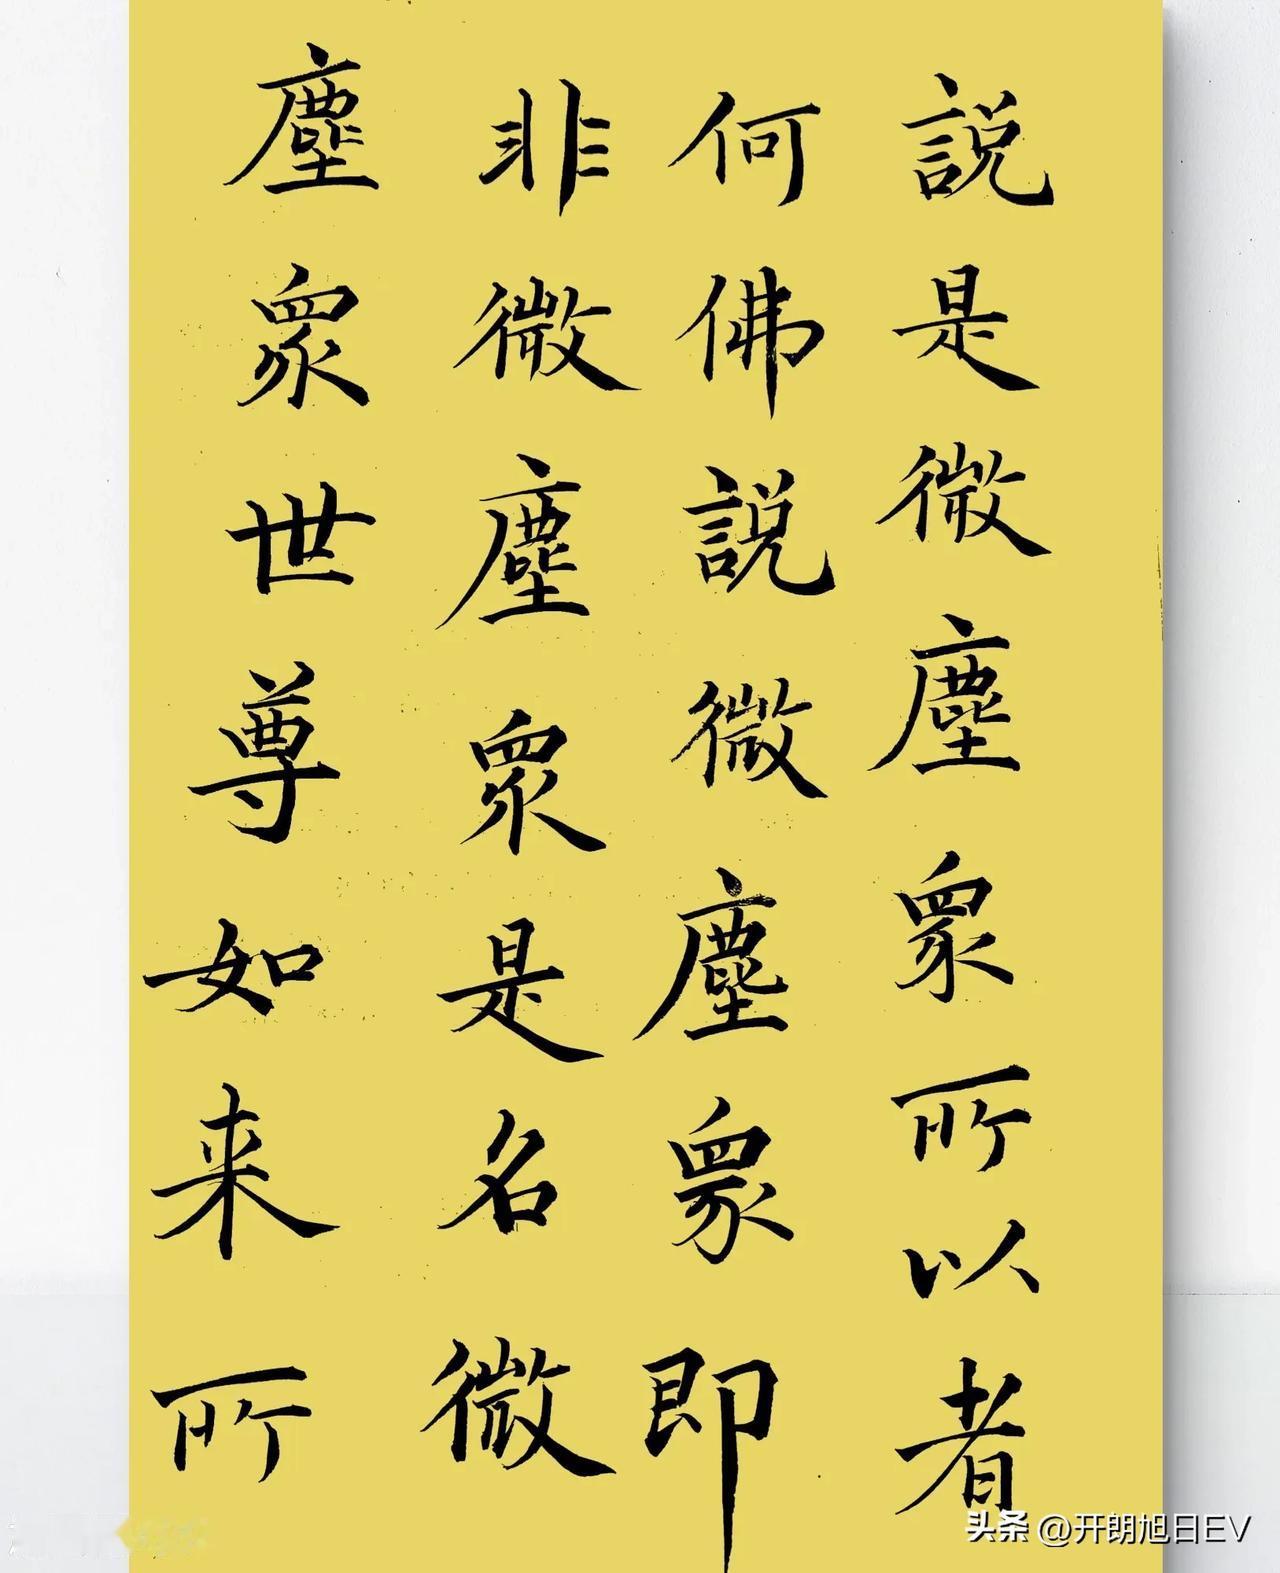 說是微塵眾所以者
何佛說微塵眾即
非微塵眾是名微
塵眾世尊如来所
头条 @开朗旭日EV